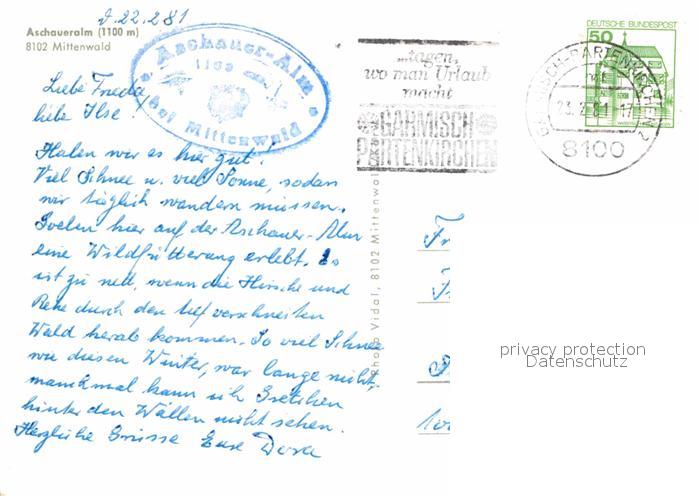 d. 22.2.81
Aschaueralm (1100 m)
8102 Mittenwald
Aschauer-Alm
1100
bei Mittenwald
...tagen,
wo man Urlaub
macht
GARMISCH
PARTENKIRCHEN
DEUTSCHE BUNDESPOST
50
GARMISCH-PARTENKIRCHEN 2
23.2.81-17
8100
Liebe Frieda
liebe Ilse!
Haben wir es hier gut!
Viel Schnee u. viel Sonne, sodass
wir täglich wandern müssen.
Soeben hier auf der Aschauer-Alm
eine Wildfütterung erlebt. Es
ist zu nett, wenn die Hirsche und
Rehe durch den tief verschneiten
Wald herab kommen. So viel Schnee
wie diesen Winter, war lange nicht,
manchmal kann ich Gretchen
hinter den Wällen nicht sehen.
Herzliche Grüsse Eure Dora
Photo Vidal, 8102 Mittenwald
privacy protection
Datenschutz